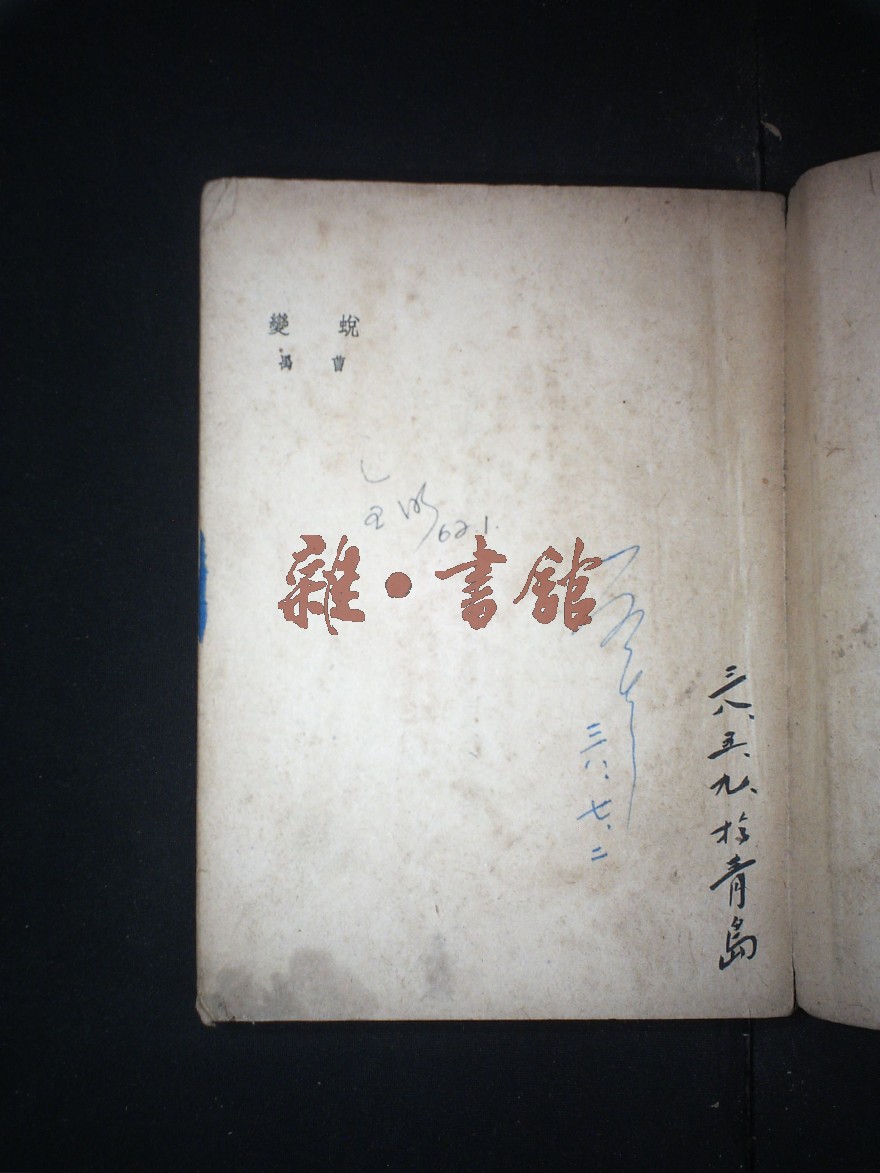 蛻變
曹禺
62.1.
雜·書館
三八、七、二
三八、五、九、於青島